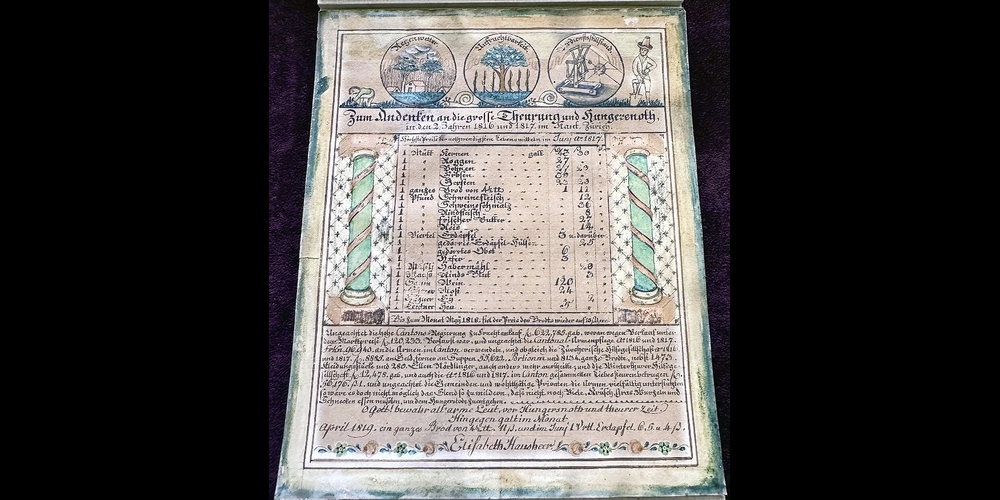 Regenwetter.
Unfruchtbarkeit.
Verdienststillstand.
Zum Andenken an die grosse Theurung und Hungersnoth,
in den 2. Jahren 1816 und 1817. im Kant. Zürich.
Höchste Preise der nothwendigsten Lebensmitteln im Junj Ao. 1817.
1 Mütt Kernen galt
1 " Roggen 27
1 " Bohnen
1 " Erbsen
1 " Gersten
1 ganzes Brod von 4 ℔tt 1
1 Pfund Schweinefleisch 12
1 " Schweineschmalz
1 " Rindfleisch 8
1 " frischer Butter 27
1 " Reis 14
1 Viertel Erdäpfel 3 u. darüber
1 " gedörrte Erdäpfel-Hülsen 25
1 " gedörrtes Obst 6
1 " Hafer 3
1 Habermähl
1 Maass Rinds Blut
1 Wein 120
1 Most 24
1 Ey
1 Zentner Heu
Bis zum Monat Maÿ 1818. fiel der Preis des Brodts wieder auf
Ungeachtet die hohe Cantons Regierung zu Fruchtankauf fl. 622,785. gab, woran wegen Verkauf unter
dem Marktpreise fl. 120,253. Verlurst war, und ungeachtet die Cantonal-Armenpflege Ao. 1816 und 1817.
Frkn. 96,940. an die Armen im Canton verwendete, und obgleich die Zürcherische Hilfsgesellschaft Ao. 1816
und 1817. fl. 8885. an Geld, ferner an Suppen Portionen und 8134. ganze Brodte, nebst 1473.
Kleidungsstücke und 280. Ellen Nördlinger, auch anders mehr austheilte, und die Winterthurer Hilfsge-
sellschaft fl. 12,478. gab, und auch die Ao. 1816 und 1817. im Canton gesammelten Liebessteuern betrugen fl.
96,176. ß 1. und ungeachtet die Gemeinden und wohlthätige Privaten die Armen vielfältig unterstützten
so ware es doch nicht möglich das Elend so zu mildern, dass nicht noch Viele Krüsch, Gras Wurzeln und
Schnecken essen mußten, um dem Hungertode zu entgehen.
O Gott! bewahr all arme Leut, vor Hungersnoth und theurer Zeit.
Hingegen galt im Monat
April 1819. ein ganzes Brod von 4 ℔tt. 11 ß. und im Junj 1 Vrtl. Erdäpfel. 6, 5. u. 4 ß.
Elisabeth Hausheer